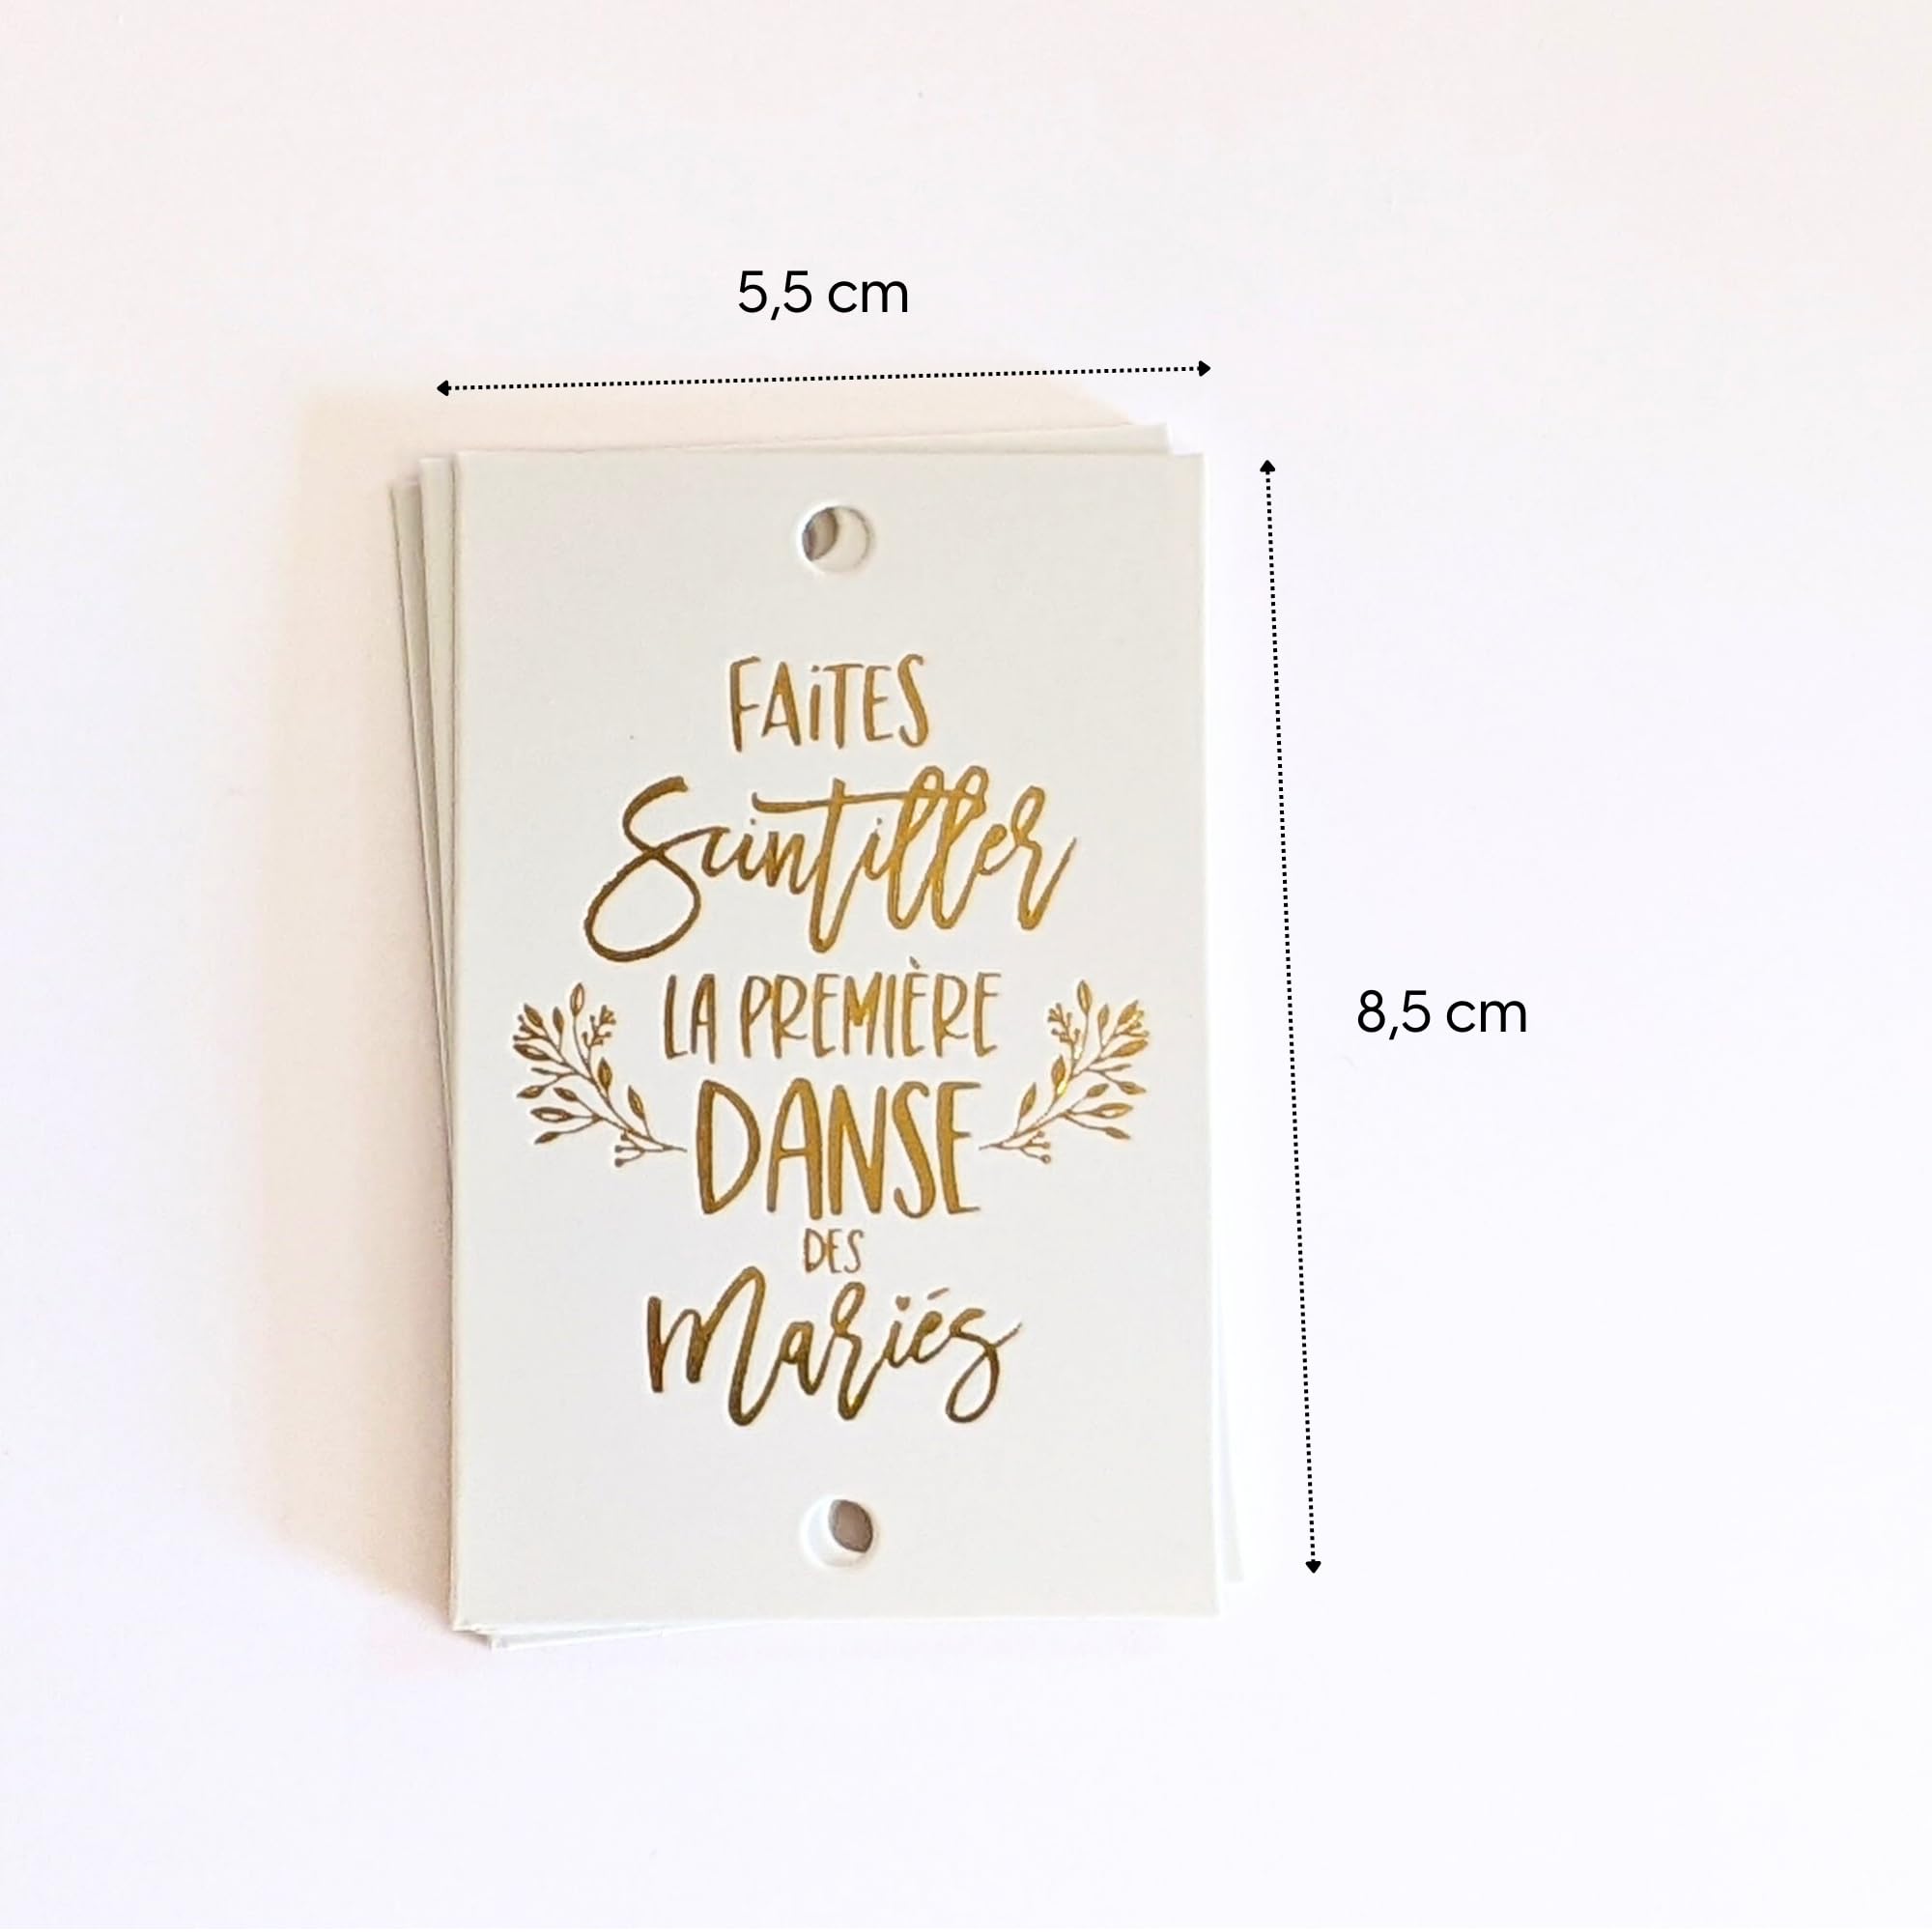 5,5 cm
FAiTES
Scintiller
LA PREMIÈRE
DANSE
DES
Mariés
8,5 cm